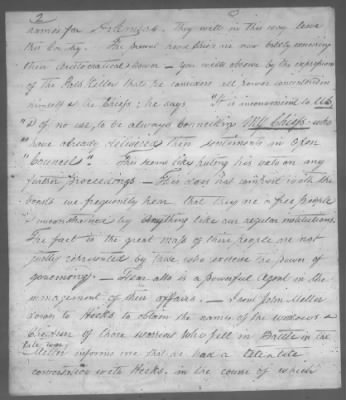 2
names for Arkansas. They will in this way leave
this Country. The drawn head Chiefs are now boldly
their aristocratical power - you will observe by the expressions
of the Path Killer that he conceives all power concentrated in
himself & the Chiefs: he says "It is inconvenient to us,
"& of no use, to be always councilling My Chiefs who
"have already delivered their sentiments in open
"Council". This seems like putting his veto on any
further proceedings - This does not comport with the
boasts we frequently hear that they are a free people
unconstrained by anything like our regular institutions.
The fact is the great mass of these people are not
justly represented by those who exercise the power of
governing. - Fear also is a powerful agent in the
management of their affairs. - I sent John Miller
down to Hicks to obtain the names of the widows &
Children of those warriors who fell in Battle in the
late war,
Miller informs me that he had a tete a tete
conversation with Hicks. in the course of which